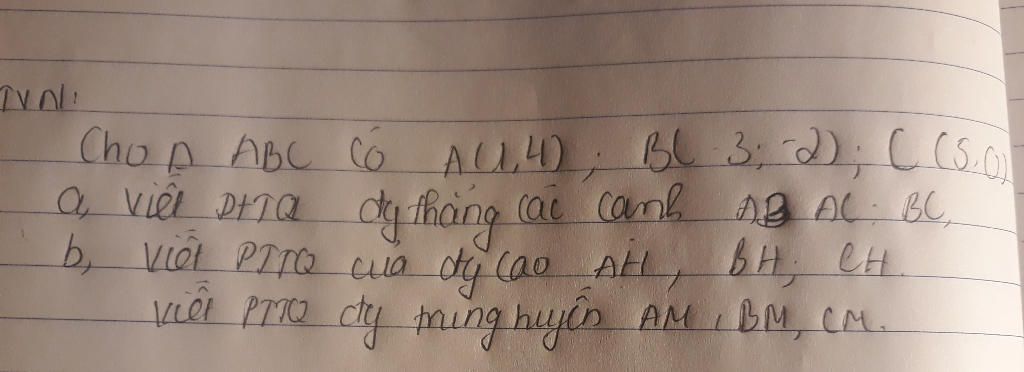 TVN1:
Cho Δ ABC có A(1,4); B( 3; -2); C(5,0)
a, Viết PTTQ đg thẳng các cạnh AB AC; BC,
b, Viết PTTQ của đg cao AH, BH; CH.
Viết PTTQ đg trung huyến AM, BM, CM.